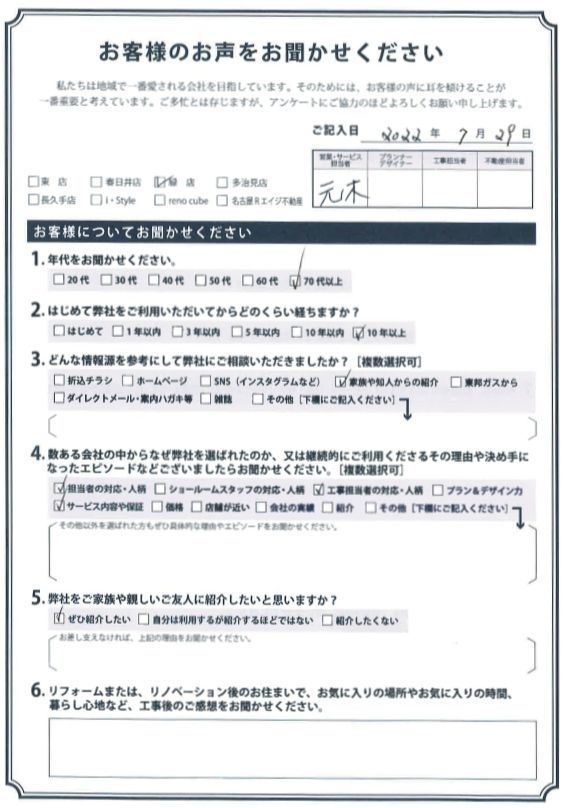 お客様のお声をお聞かせください
私たちは地域で一番愛される会社を目指しています。そのためには、お客様の声に耳を傾けることが
一番重要と考えています。ご多忙とは存じますが、アンケートにご協力のほどよろしくお願い申し上げます。
ご記入日 2022 年 7 月 29 日
営業・サービス担当者 プランナーデザイナー 工事担当者 不動産担当者
元木
□東 店 □春日井店 ☑緑 店 □多治見店
□長久手店 □i・Style □reno cube □名古屋Rエイジ不動産
お客様についてお聞かせください
1. 年代をお聞かせください。
□20代 □30代 □40代 □50代 □60代 ☑70代以上
2. はじめて弊社をご利用いただいてからどのくらい経ちますか？
□はじめて □1年以内 □3年以内 □5年以内 □10年以内 ☑10年以上
3. どんな情報源を参考にして弊社にご相談いただきましたか？［複数選択可］
□折込チラシ □ホームページ □SNS（インスタグラムなど） ☑家族や知人からの紹介 □東邦ガスから
□ダイレクトメール・案内ハガキ等 □雑誌 □その他［下欄にご記入ください］
4. 数ある会社の中からなぜ弊社を選ばれたのか、又は継続的にご利用くださるその理由や決め手に
なったエピソードなどございましたらお聞かせください。［複数選択可］
☑担当者の対応・人柄 □ショールームスタッフの対応・人柄 ☑工事担当者の対応・人柄 □プラン&デザイン力
☑サービス内容や保証 □価格 □店舗が近い □会社の実績 □紹介 □その他［下欄にご記入ください］
その他以外を選ばれた方もぜひ具体的な理由やエピソードをお聞かせください。
5. 弊社をご家族や親しいご友人に紹介したいと思いますか？
☑ぜひ紹介したい □自分は利用するが紹介するほどではない □紹介したくない
お差し支えなければ、上記の理由をお聞かせください。
6. リフォームまたは、リノベーション後のお住まいで、お気に入りの場所やお気に入りの時間、
暮らし心地など、工事後のご感想をお聞かせください。